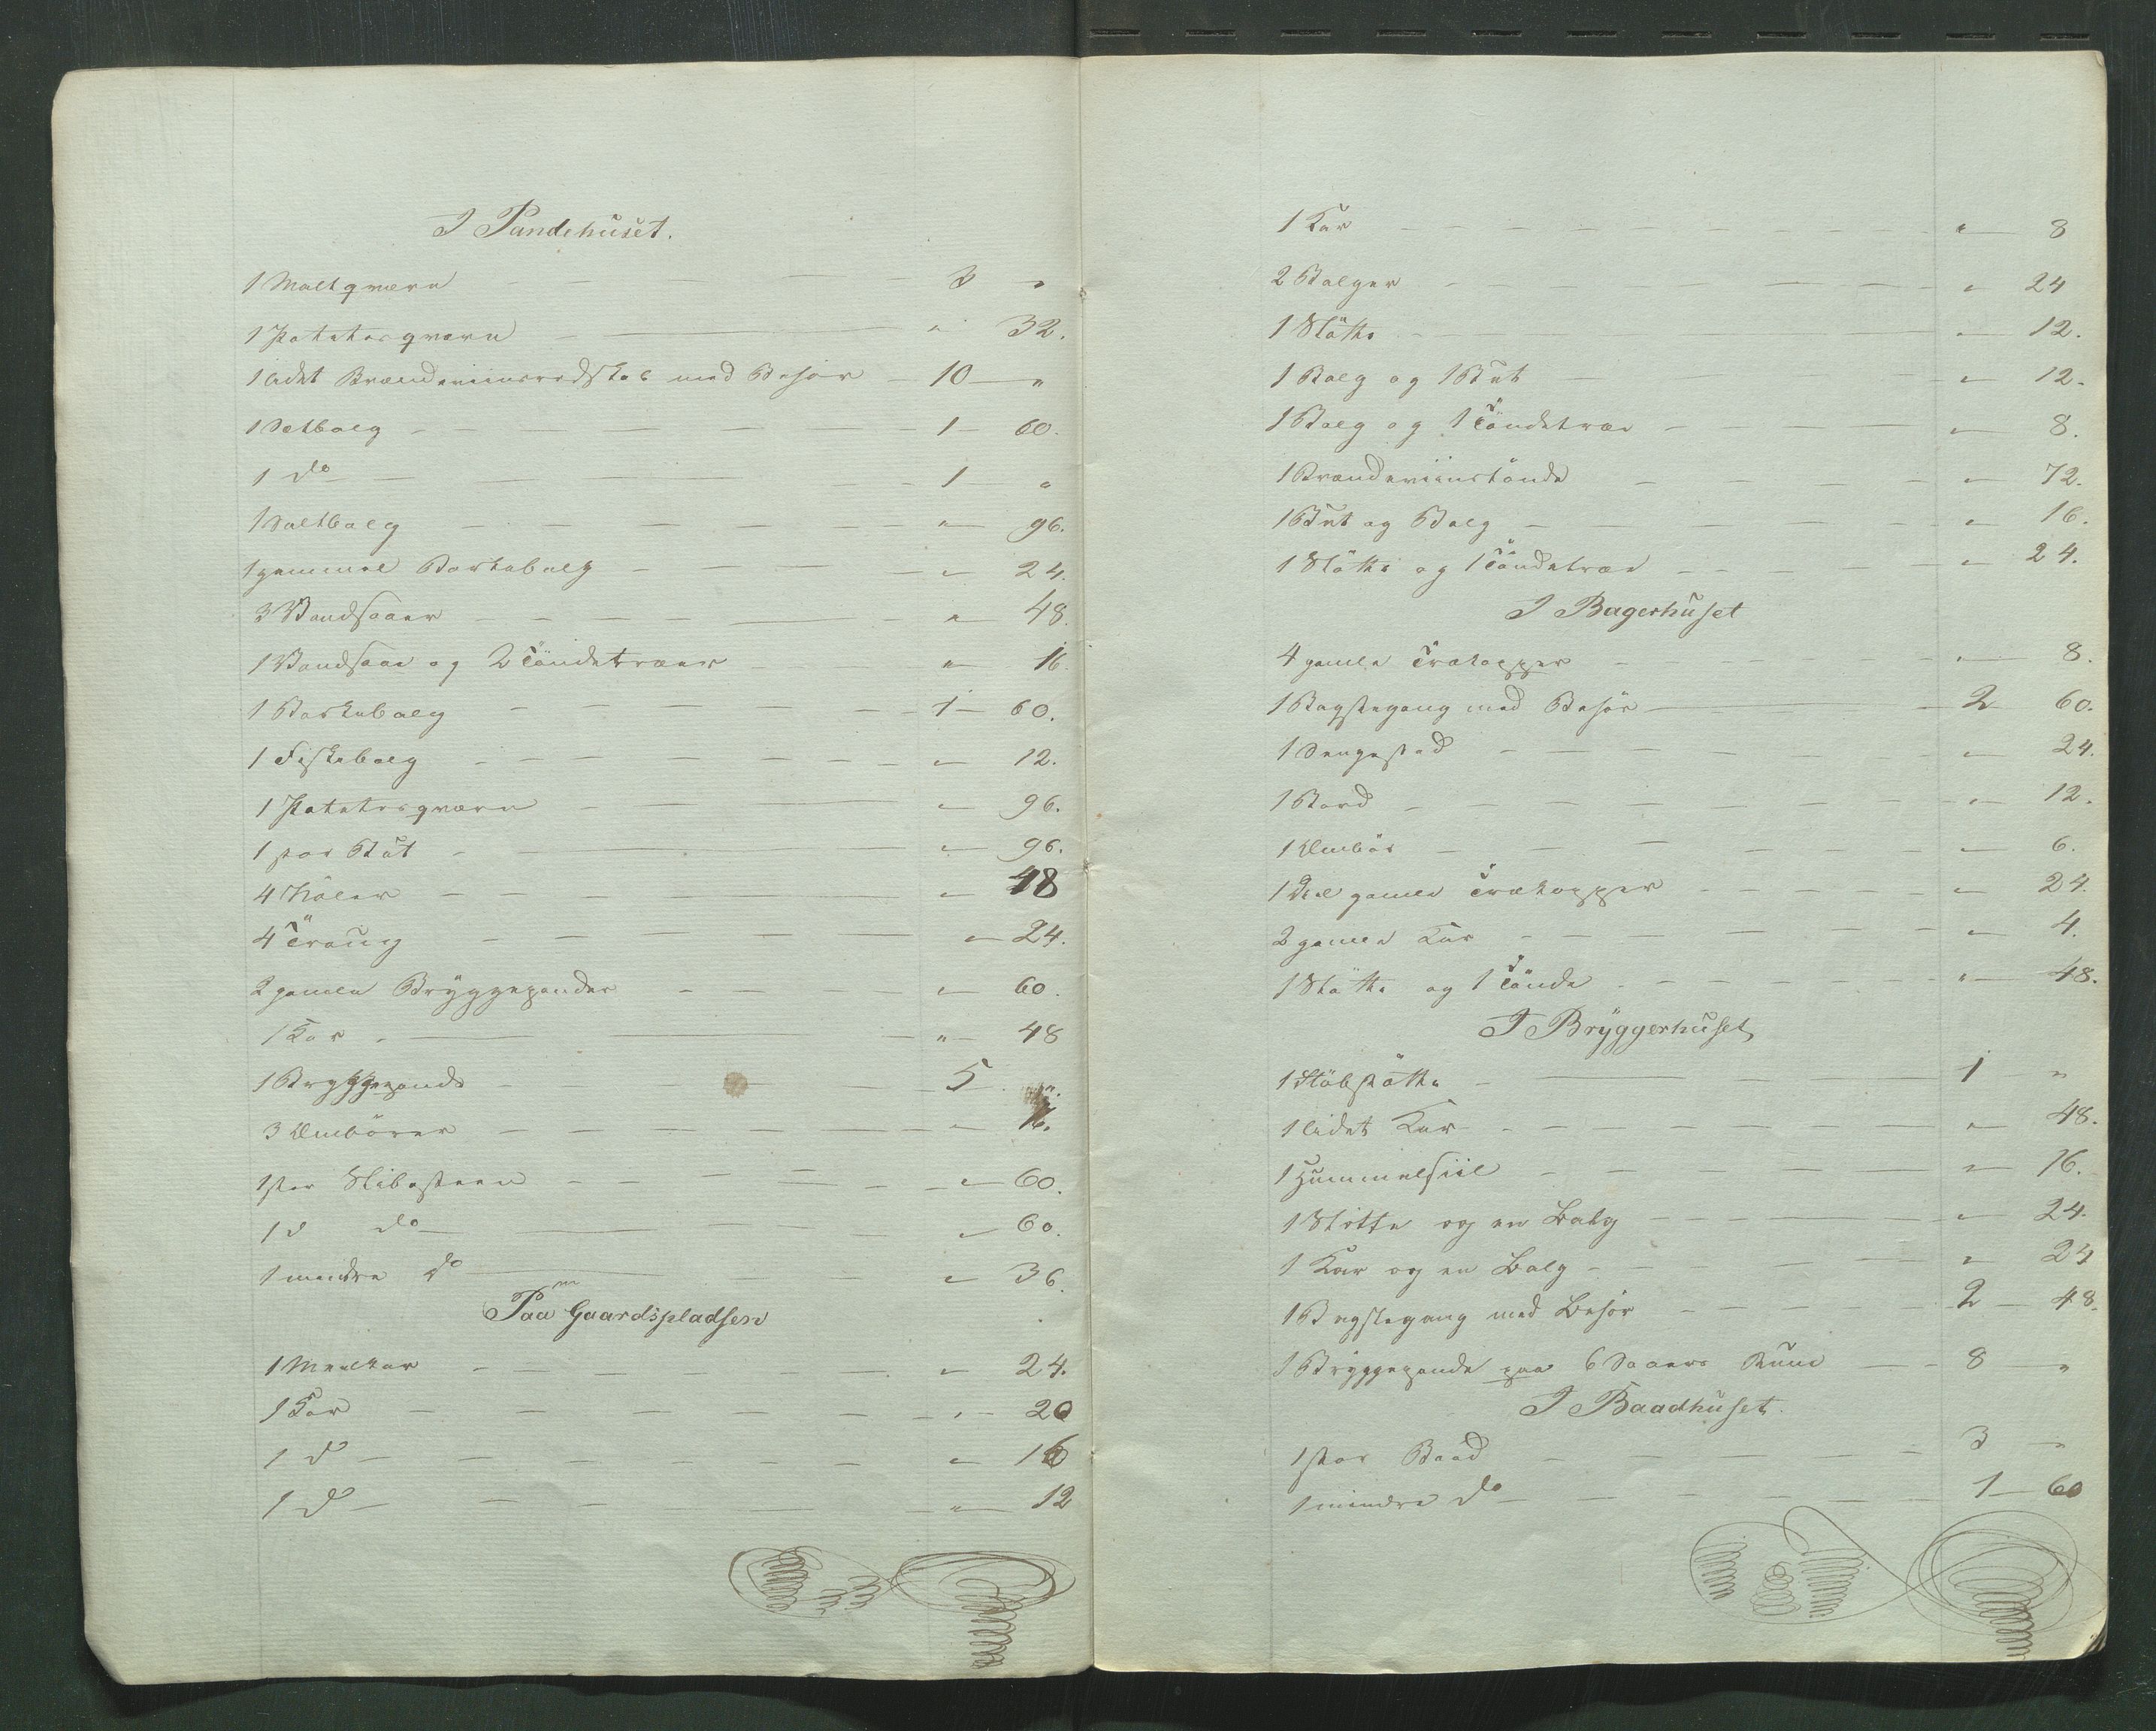 I Pandehuset.
1 Maltqværn — 3 "
1 Potetosqværn — " 32.
1 lidet Brændeviinsredskab med Behør — 10 "
1 Setbalg — 1 60.
1 do — 1 "
1 Saltbalg — " 96.
1 gammel Vaskebalg — " 24.
3 Vandsaaer — " 48.
1 Vandsaae og 2 Töndetræer — " 16.
1 Vaskebalg — 1 60.
1 Fiskebalg — " 12.
1 Potetosqværn — " 96.
1 stor Büt — " 96.
4 Koler — " 48
4 Traüg — " 24.
2 gamle Bryggepander — " 60.
1 Kar — " 48
1 Bryggepande — 5
3 Embörer — " 16.
1 stor Slibesteen — " 60.
1 d do — " 60.
1 mindre do — " 36.
Paa Gaardspladsen
1 Meelkar — " 24.
1 Kar — " 20
1 do — " 16
1 do — " 12
1 Kar — " 8
2 Balger — " 24
1 Stötte — " 12.
1 Balg og 1 Büt — " 12.
1 Balg og 1 Töndetræe — " 8.
1 Brændeviinstönde — " 72.
1 Büt og Balg — " 16.
1 Stötte og 1 Töndetræe — " 24.
I Bagerhuset
4 gamle Trækopper — " 8.
1 Bagstegang med Behör — 2 60.
1 Sengested — " 24.
1 Bord — " 12.
1 Embör — " 6.
1 Deel gamle Trækopper — " 24.
2 gamle Kar — " 4.
1 Stötte og 1 Tönde — " 48.
I Bryggerhuset
1 Stöbstötte — 1 "
1 lidet Kar — " 48.
1 Hummelsiil — " 16.
1 Stötte og en Balg — " 24.
1 Kar og en Balg — " 24
1 Bagstegang med Behör — 2 48.
1 Bryggepande paa 6 Saaers Rum — 8 "
I Baadhuset.
1 stor Baad — 3 "
1 mindre do — 1 60